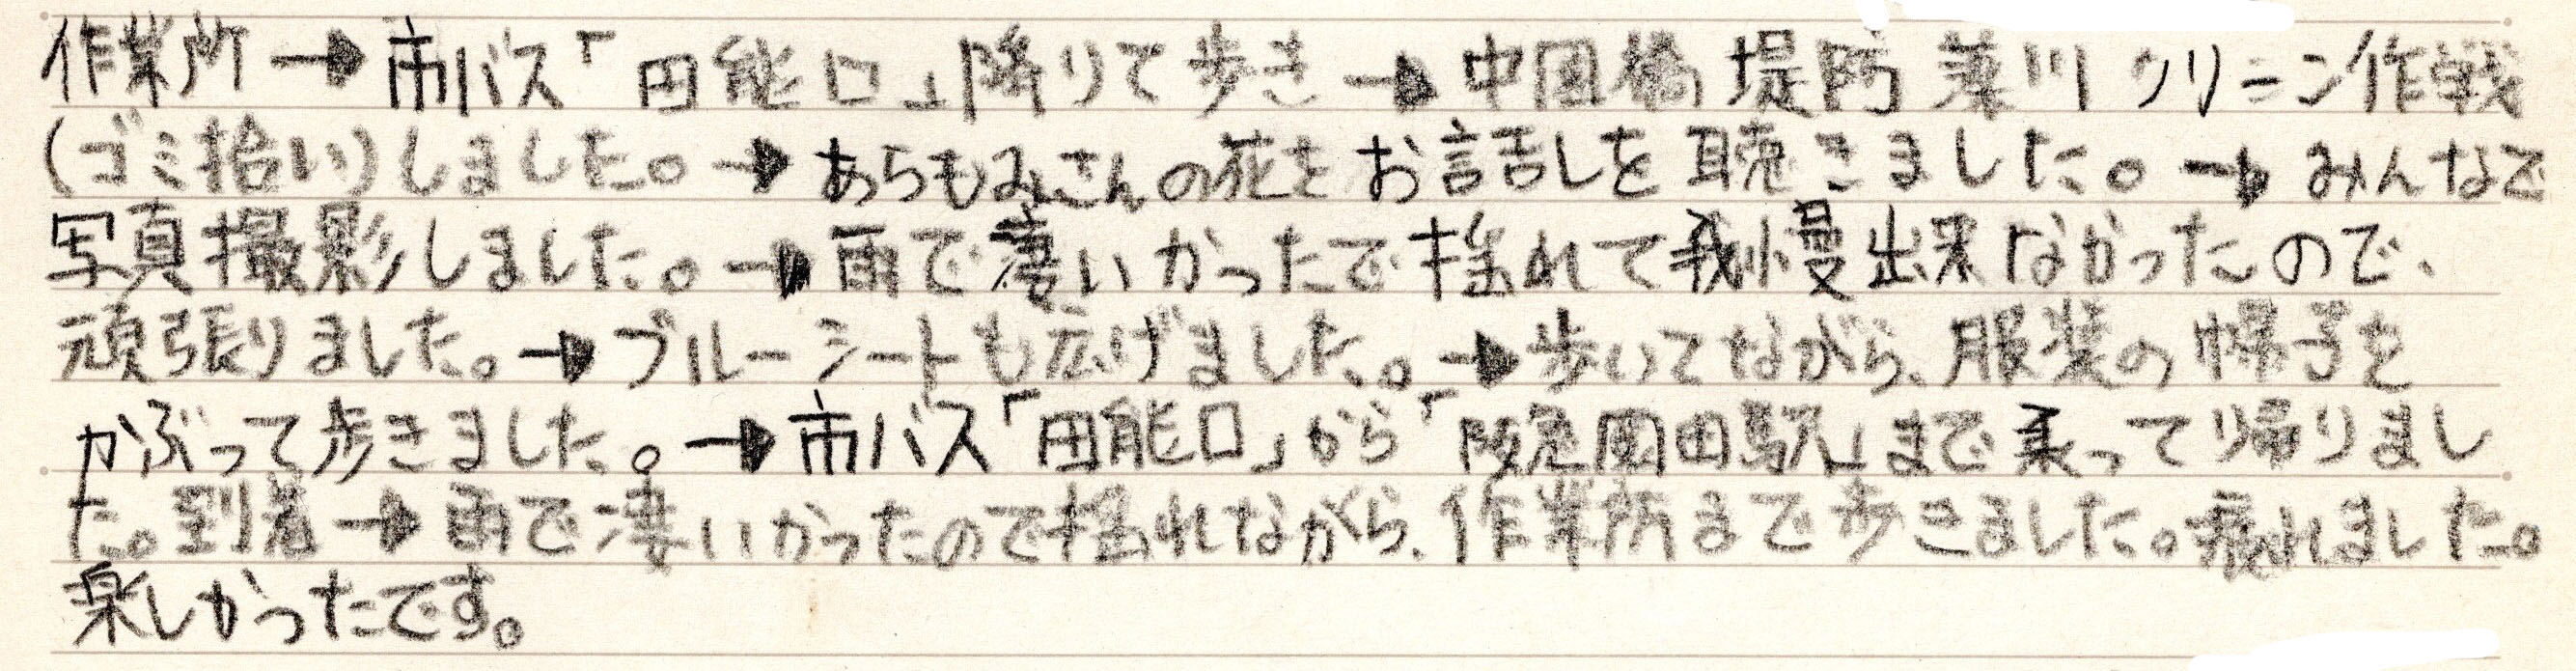 作業所→市バス「田能口」降りて歩き→中園橋 堤防 藻川 クリーン作戦
(ゴミ拾い)しました。→あらもみさんの花をお話しを聴きました。→みんなで
写真撮影しました。→雨で凄いかったで揺れて我慢出来なかったので、
頑張りました。→ブルーシートも広げました。→歩いてながら、服装の帽子を
かぶって歩きました。→市バス「田能口」から「阪急園田駅」まで乗って帰りまし
た。到着→雨で凄いかったので揺れながら、作業所まで歩きました。疲れました。
楽しかったです。